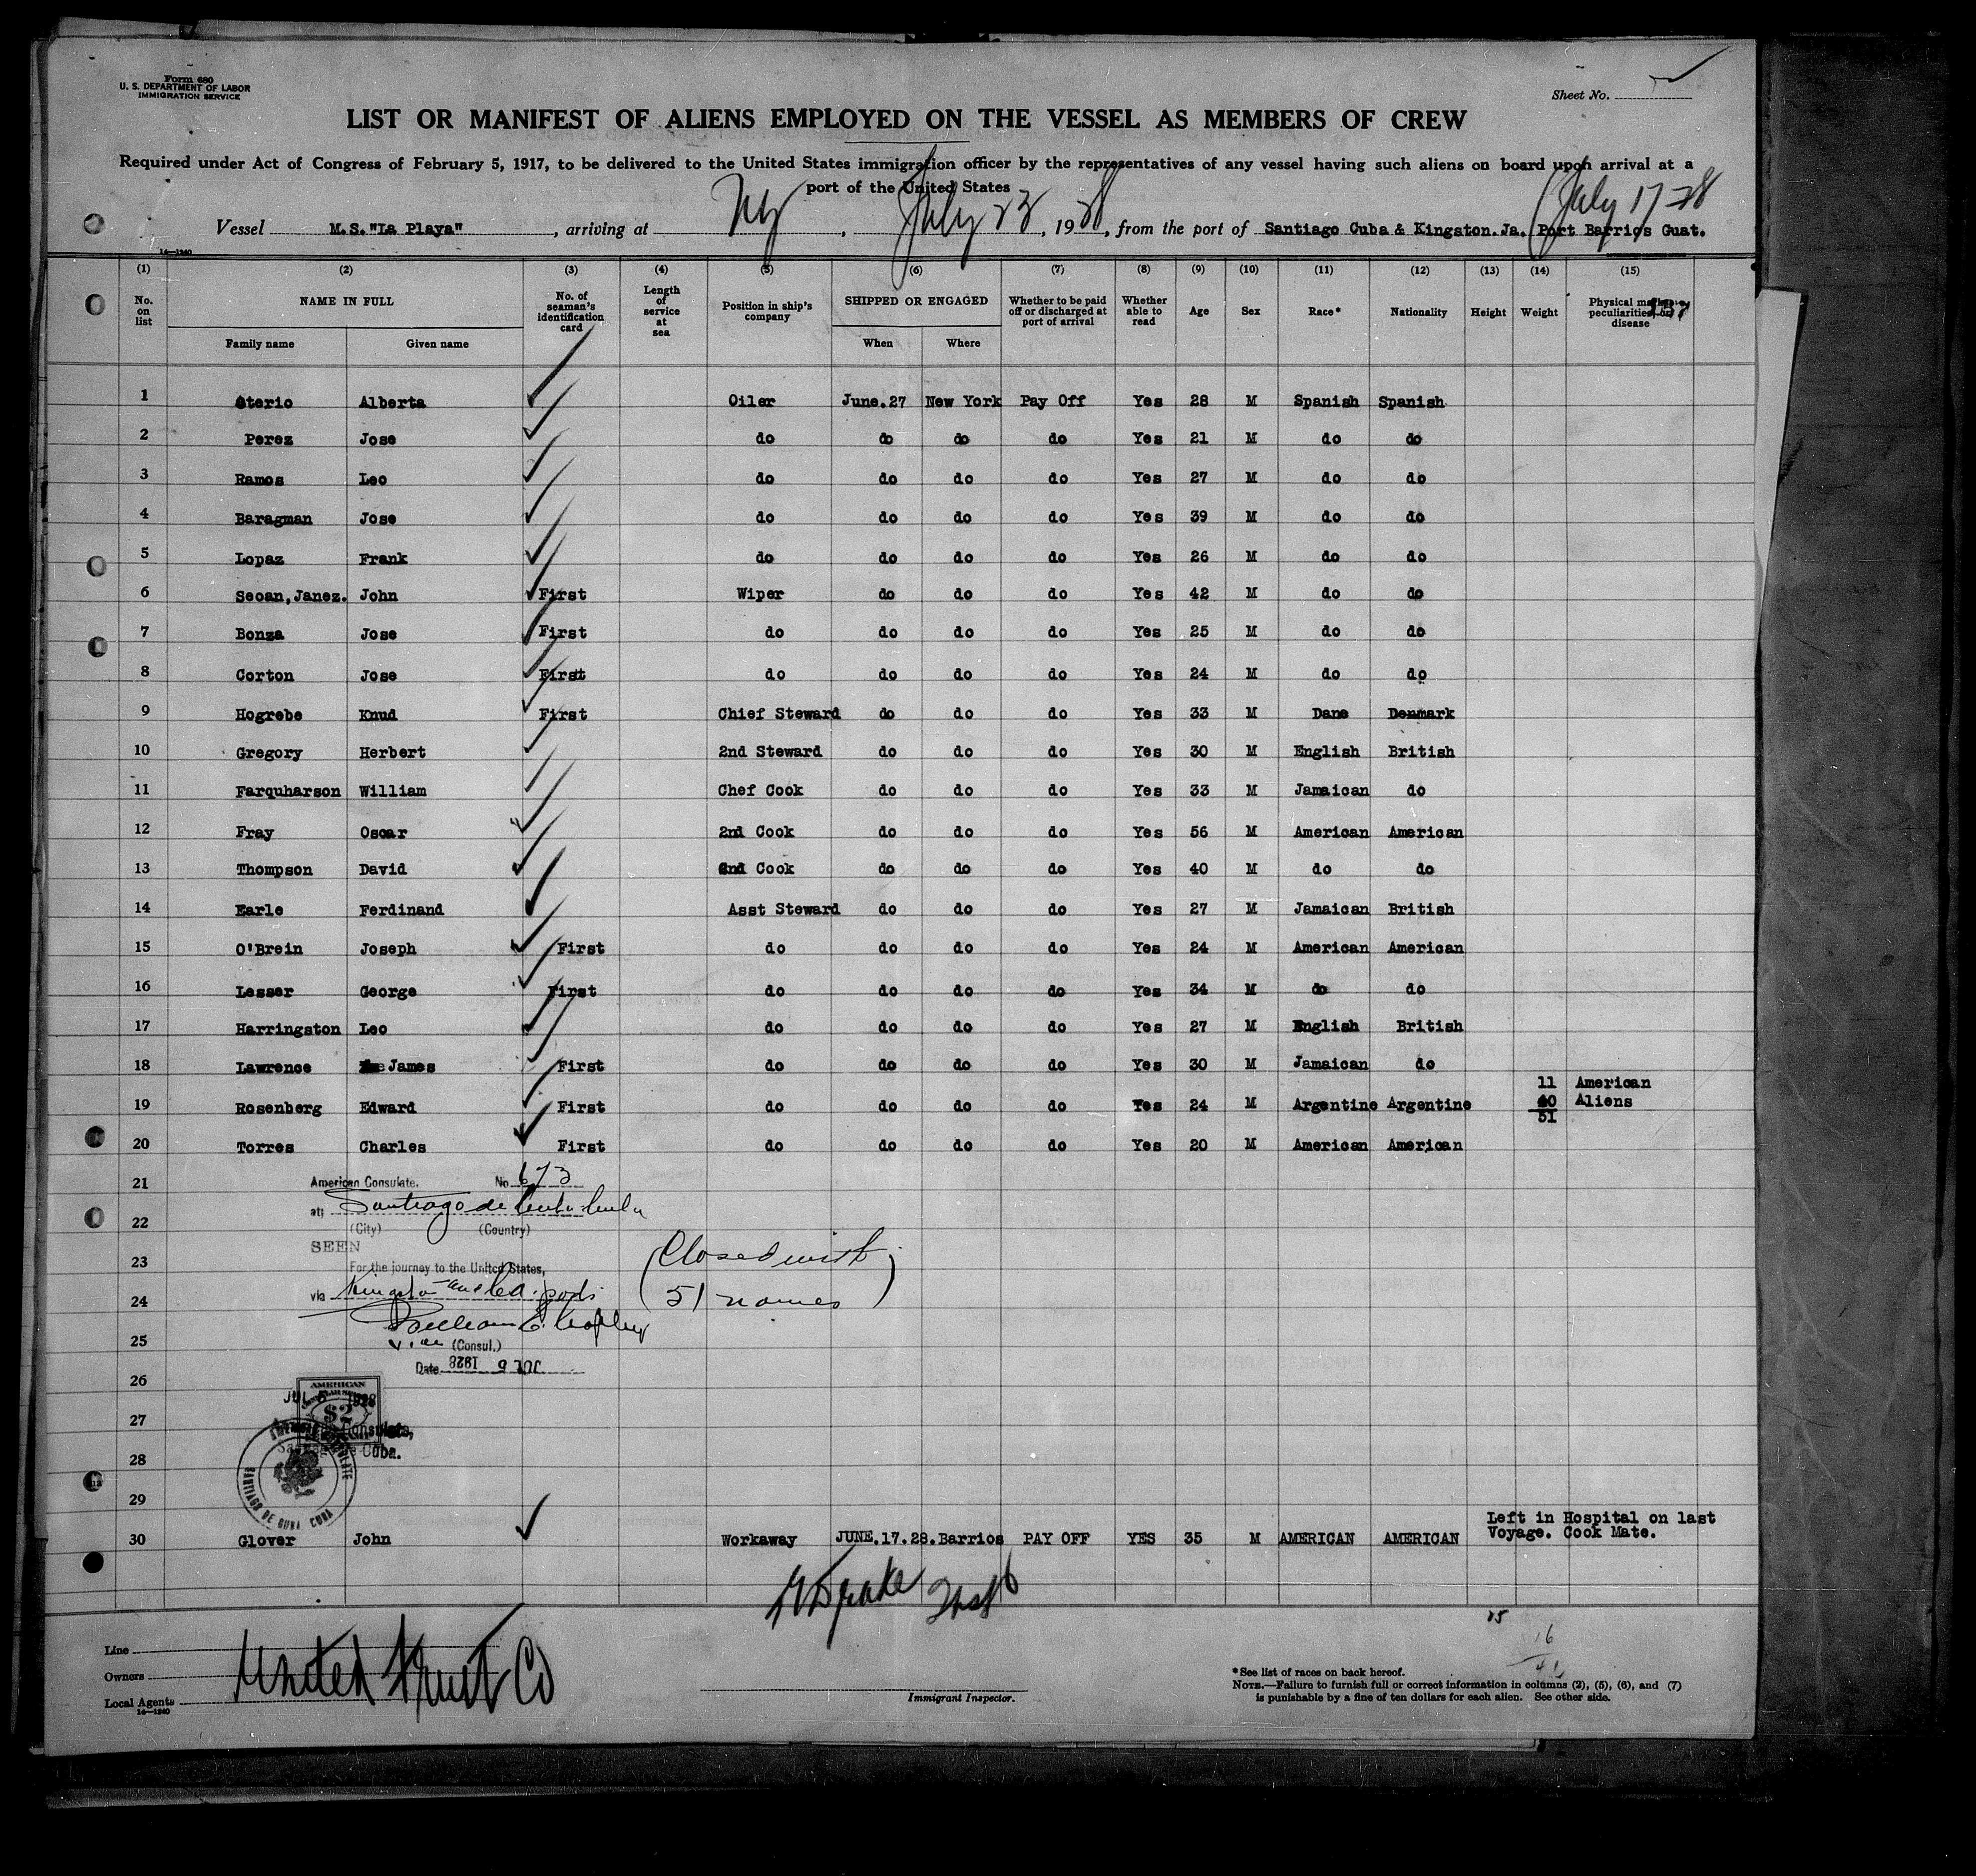 Form 680
U. S. DEPARTMENT OF LABOR
IMMIGRATION SERVICE
Sheet No.
LIST OR MANIFEST OF ALIENS EMPLOYED ON THE VESSEL AS MEMBERS OF CREW
Required under Act of Congress of February 5, 1917, to be delivered to the United States immigration officer by the representatives of any vessel having such aliens on board upon arrival at a
port of the United States
Vessel M.S."La Playa", arriving at NY, July 23, 1928, from the port of Santiago Cuba & Kingston. Ja. Port Barrios Guat.
(July 17-28
14-1240
(1) (2) (3) (4) (5) (6) (7) (8) (9) (10) (11) (12) (13) (14) (15)
No. on list NAME IN FULL No. of seaman's identification card Length of service at sea Position in ship's company SHIPPED OR ENGAGED Whether to be paid off or discharged at port of arrival Whether able to read Age Sex Race* Nationality Height Weight Physical marks, peculiarities, or disease
Family name Given name When Where
1 Aterio Alberta Oiler June.27 New York Pay Off Yes 28 M Spanish Spanish
2 Perez Jose do do do do Yes 21 M do do
3 Ramos Leo do do do do Yes 27 M do do
4 Baragman Jose do do do do Yes 39 M do do
5 Lopaz Frank do do do do Yes 26 M do do
6 Seoan,Janez. John First Wiper do do do Yes 42 M do do
7 Bonza Jose First do do do do Yes 25 M do do
8 Corton Jose First do do do do Yes 24 M do do
9 Hogrebe Knud First Chief Steward do do do Yes 33 M Dane Denmark
10 Gregory Herbert 2nd Steward do do do Yes 30 M English British
11 Farquharson William Chef Cook do do do Yes 33 M Jamaican do
12 Fray Oscar 2nd Cook do do do Yes 56 M American American
13 Thompson David 2nd Cook do do do Yes 40 M do do
14 Earle Ferdinand Asst Steward do do do Yes 27 M Jamaican British
15 O'Brein Joseph First do do do do Yes 24 M American American
16 Lesser George First do do do do Yes 34 M do do
17 Harringston Leo do do do do Yes 27 M English British
18 Lawrence James First do do do do Yes 30 M Jamaican do
11 American
19 Rosenberg Edward First do do do do Yes 24 M Argentine Argentine 40 Aliens
51
20 Torres Charles First do do do do Yes 20 M American American
21 American Consulate. No 673
at; Santiago de Cuba Cuba
22 (City) (Country)
SEEN
23 For the journey to the United States,
(Closed with
24 via Kingston
51 names)
25 (Consul.)
Date JUL 5 1928
26
AMERICAN
JUL 5 1928
27 $2
Consulate,
Cuba.
28
29
SANTIAGO DE CUBA CUBA
Left in Hospital on last
30 Glover John Workaway JUNE.17.28. Barrios PAY OFF YES 35 M AMERICAN AMERICAN Voyage. Cook Mate.
15
16
Line
Owners United Fruit Co
Local Agents
14-1240
Immigrant Inspector.
*See list of races on back hereof.
NOTE.—Failure to furnish full or correct information in columns (2), (5), (6), and (7)
is punishable by a fine of ten dollars for each alien. See other side.